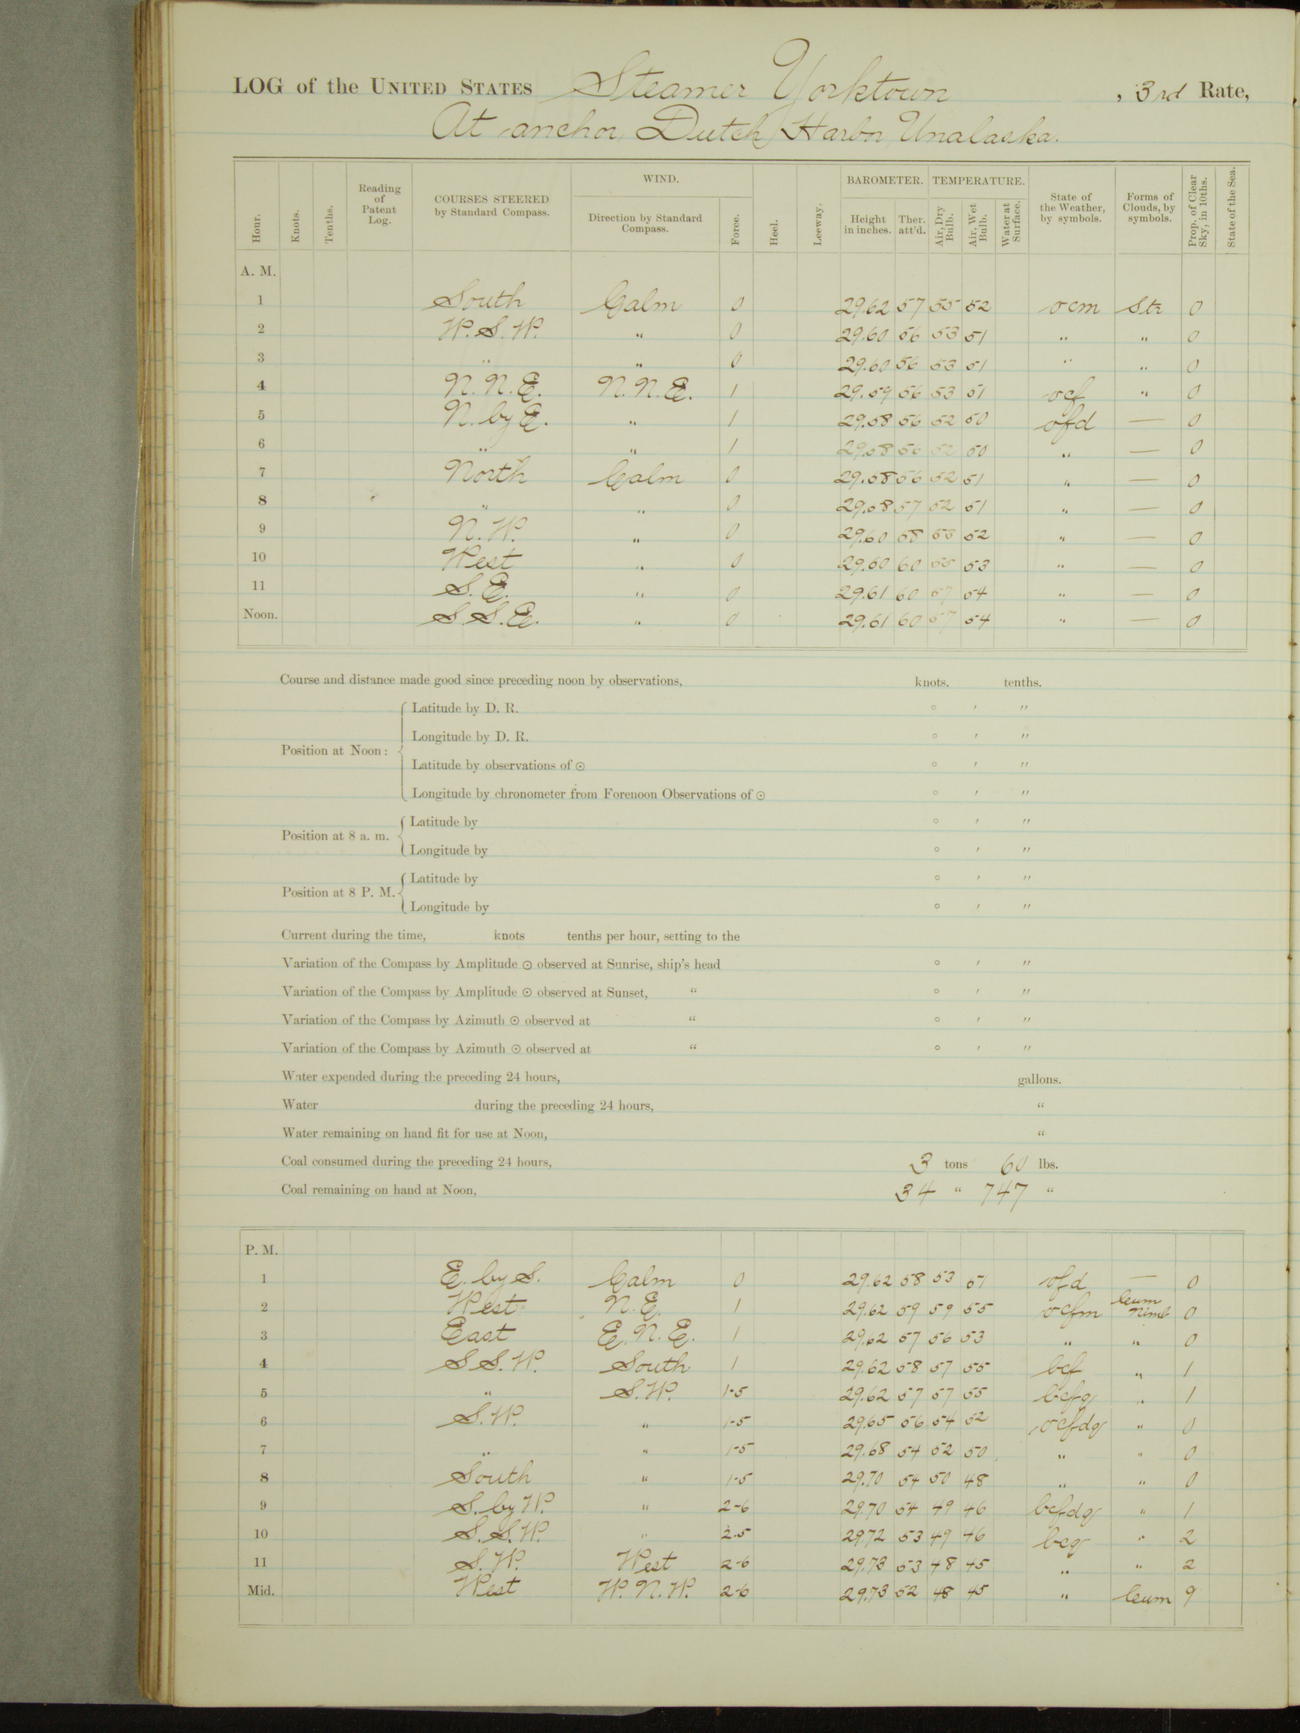 LOG of the UNITED STATES Steamer Yorktown, 3rd Rate,
At anchor, Dutch Harbor, Unalaska.
Hour. Knots. Tenths. Reading of Patent Log. COURSES STEERED by Standard Compass. WIND. Direction by Standard Compass. Force. Heel. Leeway. BAROMETER. Height in inches. Ther. att'd. TEMPERATURE. Air, Dry Bulb. Air, Wet Bulb. Water at Surface. State of the Weather, by symbols. Forms of Clouds, by symbols. Prop. of Clear Sky, in 10ths. State of the Sea.
A. M.
1 South Calm 0 29.62 57 55 52 ocm Str 0
2 W.S.W. " 0 29.60 56 53 51 " " 0
3 " " 0 29.60 56 53 51 " " 0
4 N.N.E. N.N.E. 1 29.59 56 53 51 ocf " 0
5 N. by E. " 1 29.58 56 52 50 ofd — 0
6 " " 1 29.58 56 52 50 " — 0
7 North Calm 0 29.58 56 52 51 " — 0
8 " " 0 29.58 57 52 51 " — 0
9 N.W. " 0 29.60 58 53 52 " — 0
10 West " 0 29.60 60 55 53 " — 0
11 S.E. " 0 29.61 60 57 54 " — 0
Noon. S.S.E. " 0 29.61 60 57 54 " — 0
Course and distance made good since preceding noon by observations, knots. tenths.
Position at Noon:
Latitude by D. R. ° ′ ″
Longitude by D. R. ° ′ ″
Latitude by observations of ⊙ ° ′ ″
Longitude by chronometer from Forenoon Observations of ⊙ ° ′ ″
Position at 8 a. m.
Latitude by ° ′ ″
Longitude by ° ′ ″
Position at 8 P. M.
Latitude by ° ′ ″
Longitude by ° ′ ″
Current during the time, knots tenths per hour, setting to the
Variation of the Compass by Amplitude ⊙ observed at Sunrise, ship's head ° ′ ″
Variation of the Compass by Amplitude ⊙ observed at Sunset, " ° ′ ″
Variation of the Compass by Azimuth ⊙ observed at " ° ′ ″
Variation of the Compass by Azimuth ⊙ observed at " ° ′ ″
Water expended during the preceding 24 hours, gallons.
Water during the preceding 24 hours, "
Water remaining on hand fit for use at Noon, "
Coal consumed during the preceding 24 hours, 3 tons 60 lbs.
Coal remaining on hand at Noon, 34 " 747 "
P. M.
1 E. by S. Calm 0 29.62 58 53 51 ofd — 0
2 West N.E. 1 29.62 59 59 55 ocfm Cum Nimb 0
3 East E.N.E. 1 29.62 57 56 53 " " 0
4 S.S.W. South 1 29.62 58 57 55 bcf " 1
5 " S.W. 1-5 29.62 57 57 55 bcfq " 1
6 S.W. " 1-5 29.65 56 54 52 ocfdq " 0
7 " " 1-5 29.68 54 52 50 " " 0
8 South " 1-5 29.70 54 50 48 " " 0
9 S. by W. " 2-6 29.70 54 49 46 bcfdq " 1
10 S.S.W. " 2-5 29.72 53 49 46 bcq " 2
11 S.W. West 2-6 29.73 53 48 45 " " 2
Mid. West W.N.W. 2-6 29.73 52 48 45 " Cum 9